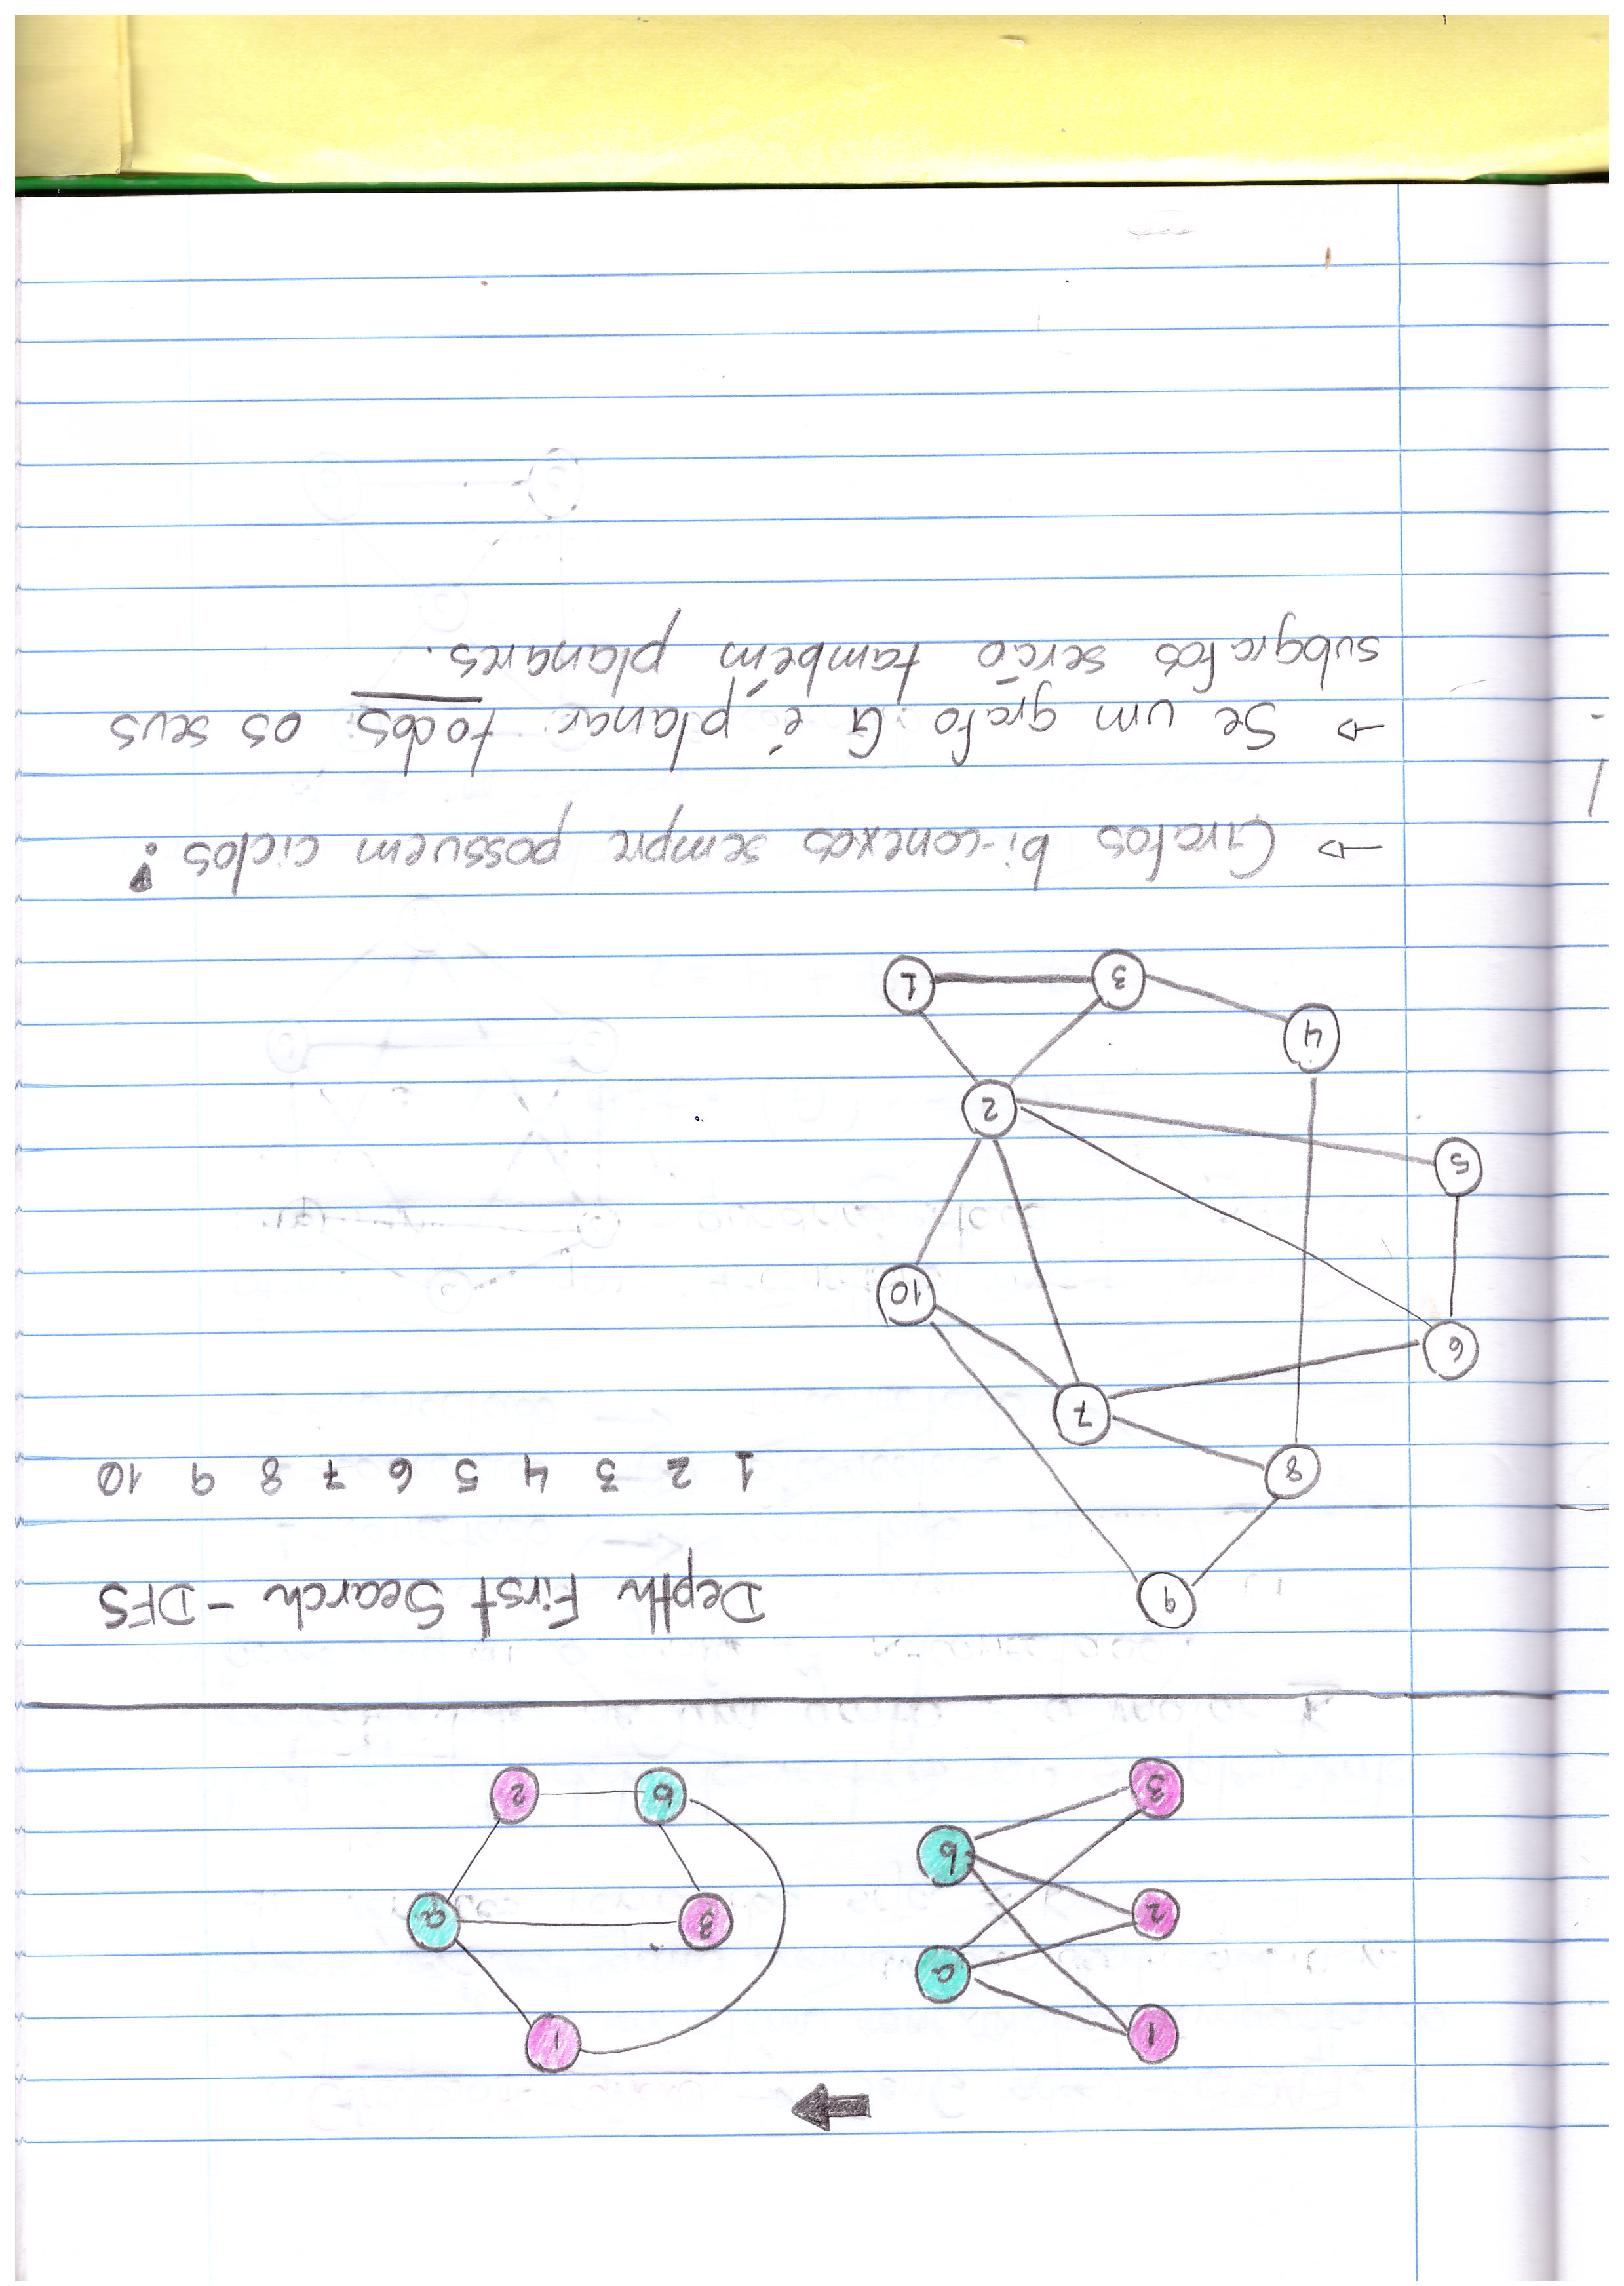 1
a
2
b
3
1
3
a
b
2
9
Depth First Search - DFS
8
1 2 3 4 5 6 7 8 9 10
7
6
10
5
2
4
3
1
→ Grafos bi-conexos sempre possuem ciclos!
→ Se um grafo G é planar todos os seus
subgrafos serão também planares.